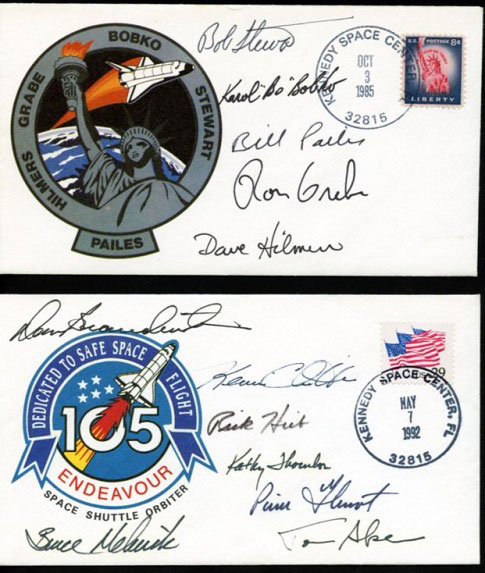 HILMERS GRABE BOBKO STEWART
PAILES
Bob Stewart
KENNEDY SPACE CENTER
OCT
3
1985
32815
U.S. POSTAGE 8¢
LIBERTY
Karol "Bo" Bobko
Bill Pailes
Ron Grabe
Dave Hilmers
Dan Brandenstein
DEDICATED TO SAFE SPACE FLIGHT
105
ENDEAVOUR
SPACE SHUTTLE ORBITER
Kevin Chilton
Rick Hieb
Kathy Thornton
Pierre Thuot
Tom Akers
Bruce Melnick
29
KENNEDY SPACE CENTER, FL
MAY
7
1992
32815